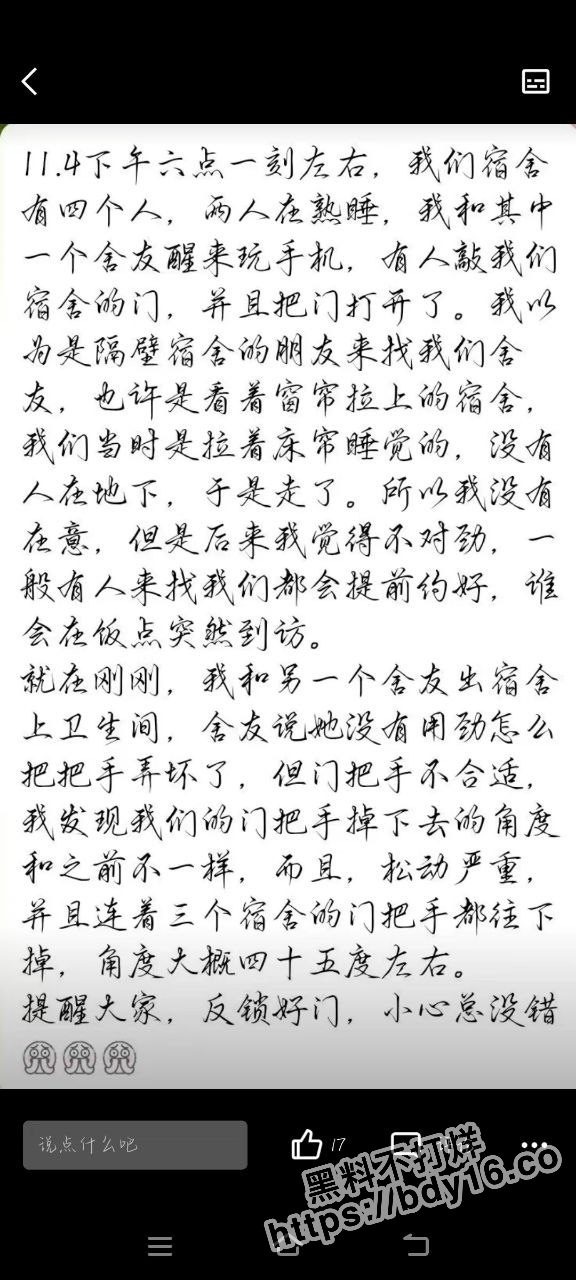 11.4下午六点一刻左右，我们宿舍
有四个人，两人在熟睡，我和其中
一个舍友醒来玩手机，有人敲我们
宿舍的门，并且把门打开了。我以
为是隔壁宿舍的朋友来找我们舍
友，也许是看着窗帘拉上的宿舍，
我们当时是拉着床帘睡觉的，没有
人在地下，于是走了。所以我没有
在意，但是后来我觉得不对劲，一
般有人来找我们都会提前约好，谁
会在饭点突然到访。
就在刚刚，我和另一个舍友出宿舍
上卫生间，舍友说她没有用劲怎么
把把手弄坏了，但门把手不合适，
我发现我们的门把手掉下去的角度
和之前不一样，而且，松动严重，
并且连着三个宿舍的门把手都往下
掉，角度大概四十五度左右。
提醒大家，反锁好门，小心总没错
说点什么吧
17
黑料不打烊
https://bdy16.co